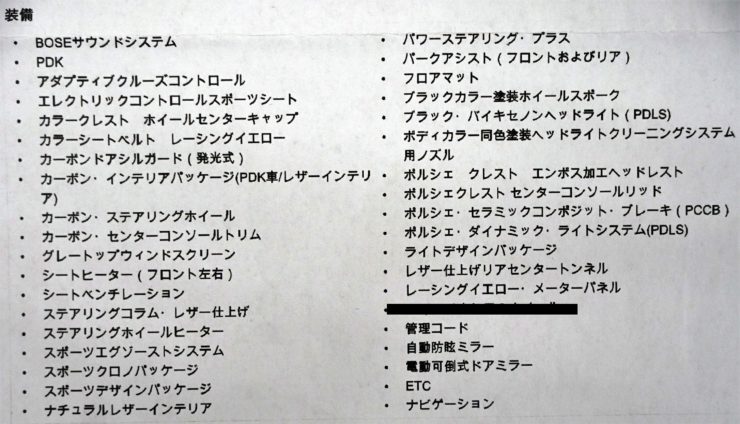 装備
• BOSEサウンドシステム
• PDK
• アダプティブクルーズコントロール
• エレクトリックコントロールスポーツシート
• カラークレスト　ホイールセンターキャップ
• カラーシートベルト　レーシングイエロー
• カーボンドアシルガード（発光式）
• カーボン・インテリアパッケージ(PDK車/レザーインテリ
ア)
• カーボン・ステアリングホイール
• カーボン・センターコンソールトリム
• グレートップウィンドスクリーン
• シートヒーター（フロント左右）
• シートベンチレーション
• ステアリングコラム・レザー仕上げ
• ステアリングホイールヒーター
• スポーツエグゾーストシステム
• スポーツクロノパッケージ
• スポーツデザインパッケージ
• ナチュラルレザーインテリア
• パワーステアリング・プラス
• パークアシスト（フロントおよびリア）
• フロアマット
• ブラックカラー塗装ホイールスポーク
• ブラック・バイキセノンヘッドライト（PDLS)
• ボディカラー同色塗装ヘッドライトクリーニングシステム
用ノズル
• ポルシェ　クレスト　エンボス加工ヘッドレスト
• ポルシェクレスト センターコンソールリッド
• ポルシェ・セラミックコンポジット・ブレーキ（PCCB）
• ポルシェ・ダイナミック・ライトシステム(PDLS)
• ライトデザインパッケージ
• レザー仕上げリアセンタートンネル
• レーシングイエロー・メーターパネル
• 管理コード
• 自動防眩ミラー
• 電動可倒式ドアミラー
• ETC
• ナビゲーション